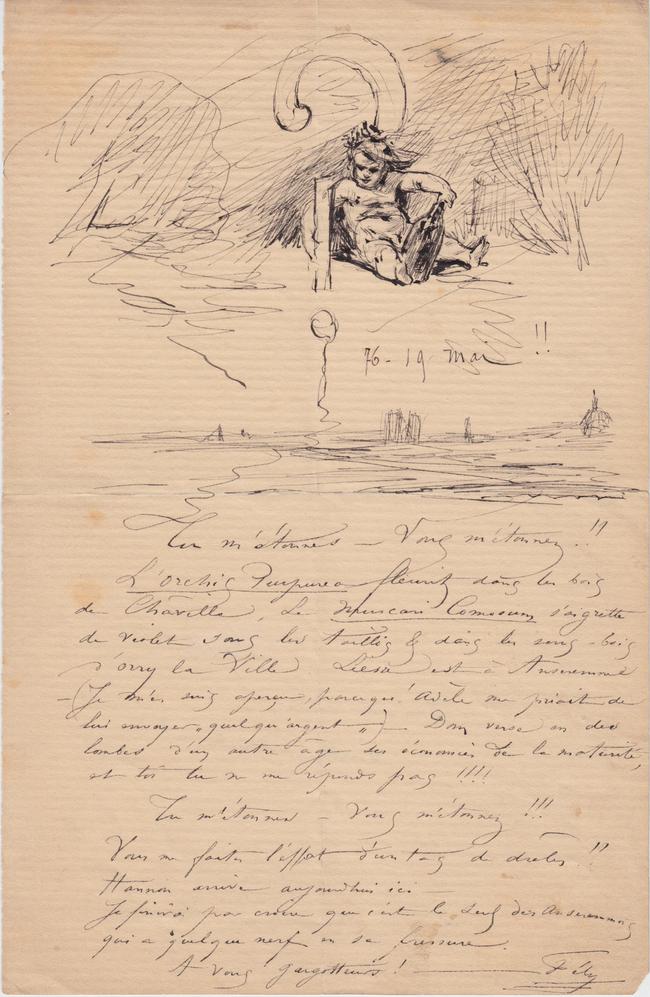 76 - 19 Mai !!
Tu m'étonnes — Vous m'étonnez !!
L'orchis Purpurea fleurit dans les bois
de Chaville, Le Muscari Comosum s'aigrette
de violet sous les taillis & dans les sous-bois
d'orry la Ville est à Anseremme
— (Je m'en suis aperçu, parceque Adèle me priait de
lui envoyer „quelqu'argent„) — Dom verse en des
lombes d'un autre âge ses économies de la maturité,
et toi tu ne me réponds pas !!!!
Tu m'étonnes — Vous m'étonnez !!!
Vous me faites l'effet d'un tas de drôles !!
Hannon arrive aujourdhui ici —
Je finirai par croire que c'est le seul des Anseremmois
qui a quelque nerf en sa fressure.
A vous gargotteurs ! — Fély